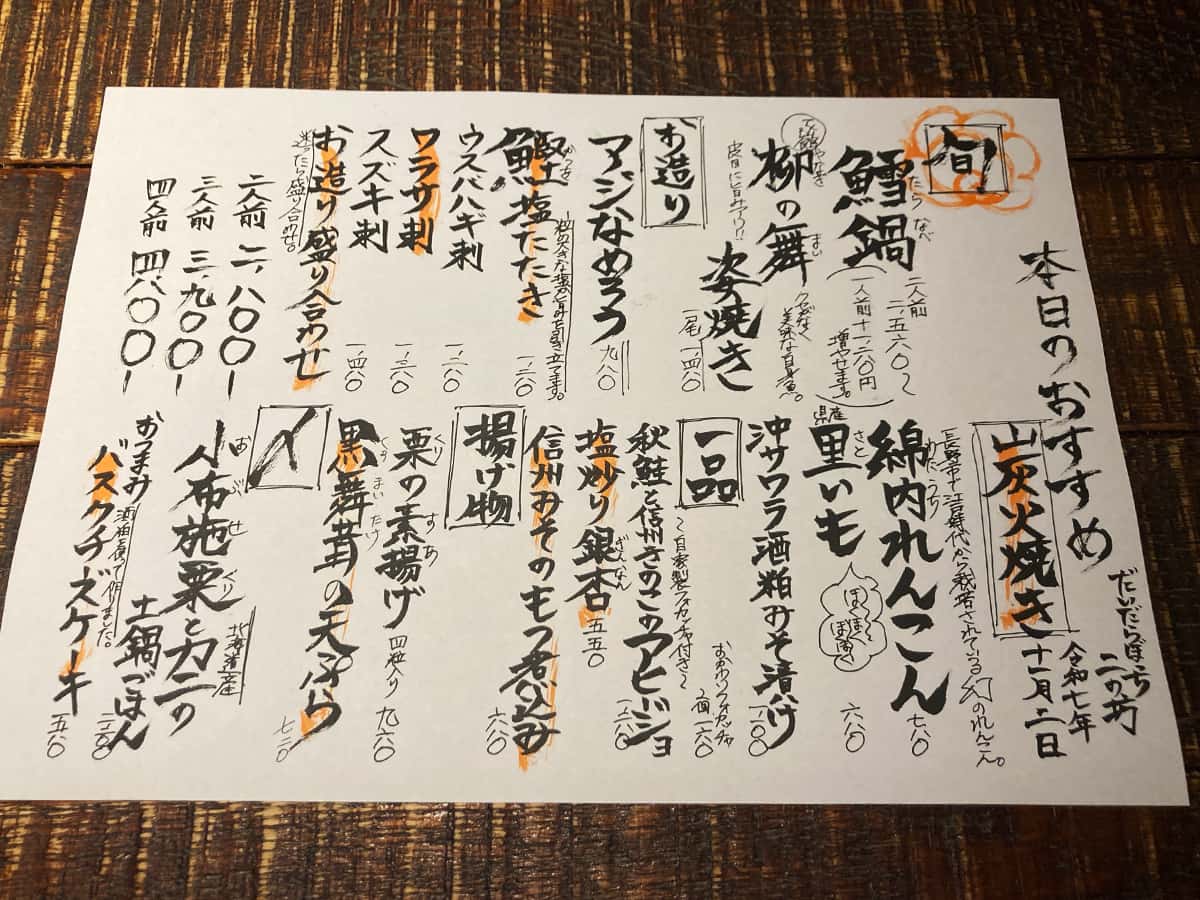 本日のおすすめ
だいだらぼっち
二の坊
令和七年
十一月二日
旬!
鱈鍋
たらなべ
二人前
二、五六〇〜
(一人前十一、二八〇円
増やせます。)
柳の舞
やなぎ
まい
皮目に旨みアリ!!
クセがなく
美味な白身魚。
姿焼き
一尾 一、四八〇
お造り
アジなめろう
九八〇
鰹塩たたき
かつお
粒の大きな塩が旨みを引き立てます。
一、二八〇
ウスバハギ刺
一、二八〇
ワラサ刺
一、二八〇
スズキ刺
一、四八〇
お造り盛り合わせ
迷ったら盛り合わせ。
二人前 二、八〇〇ー
三人前 三、九〇〇ー
四人前 四、八〇〇ー
山灰火焼き
長野市で江戸時代から栽培されている幻のれんこん。
綿内れんこん
わたうち
七八〇
県産
里いも
さと
ほくほく
六八〇
沖サワラ酒粕みそ漬け
一、一〇〇
一品
〜自家製フォカッチャ付き〜
おかわりフォカッチャ
二個 一六〇
秋鮭と信州きのこのアヒージョ
一、二八〇
塩炒り銀杏
ぎんなん
五五〇
信州みそのもつ煮込み
六八〇
揚げ物
栗の素揚げ
くり
すあ
四粒入り 九六〇
黒舞茸の天ぷら
くろまいたけ
七二〇
〆
小布施栗とカニの
おぶせくり
北海道産
土鍋ごはん
おつまみ
バスクチーズケーキ
酒粕を使って作りました。
五八〇